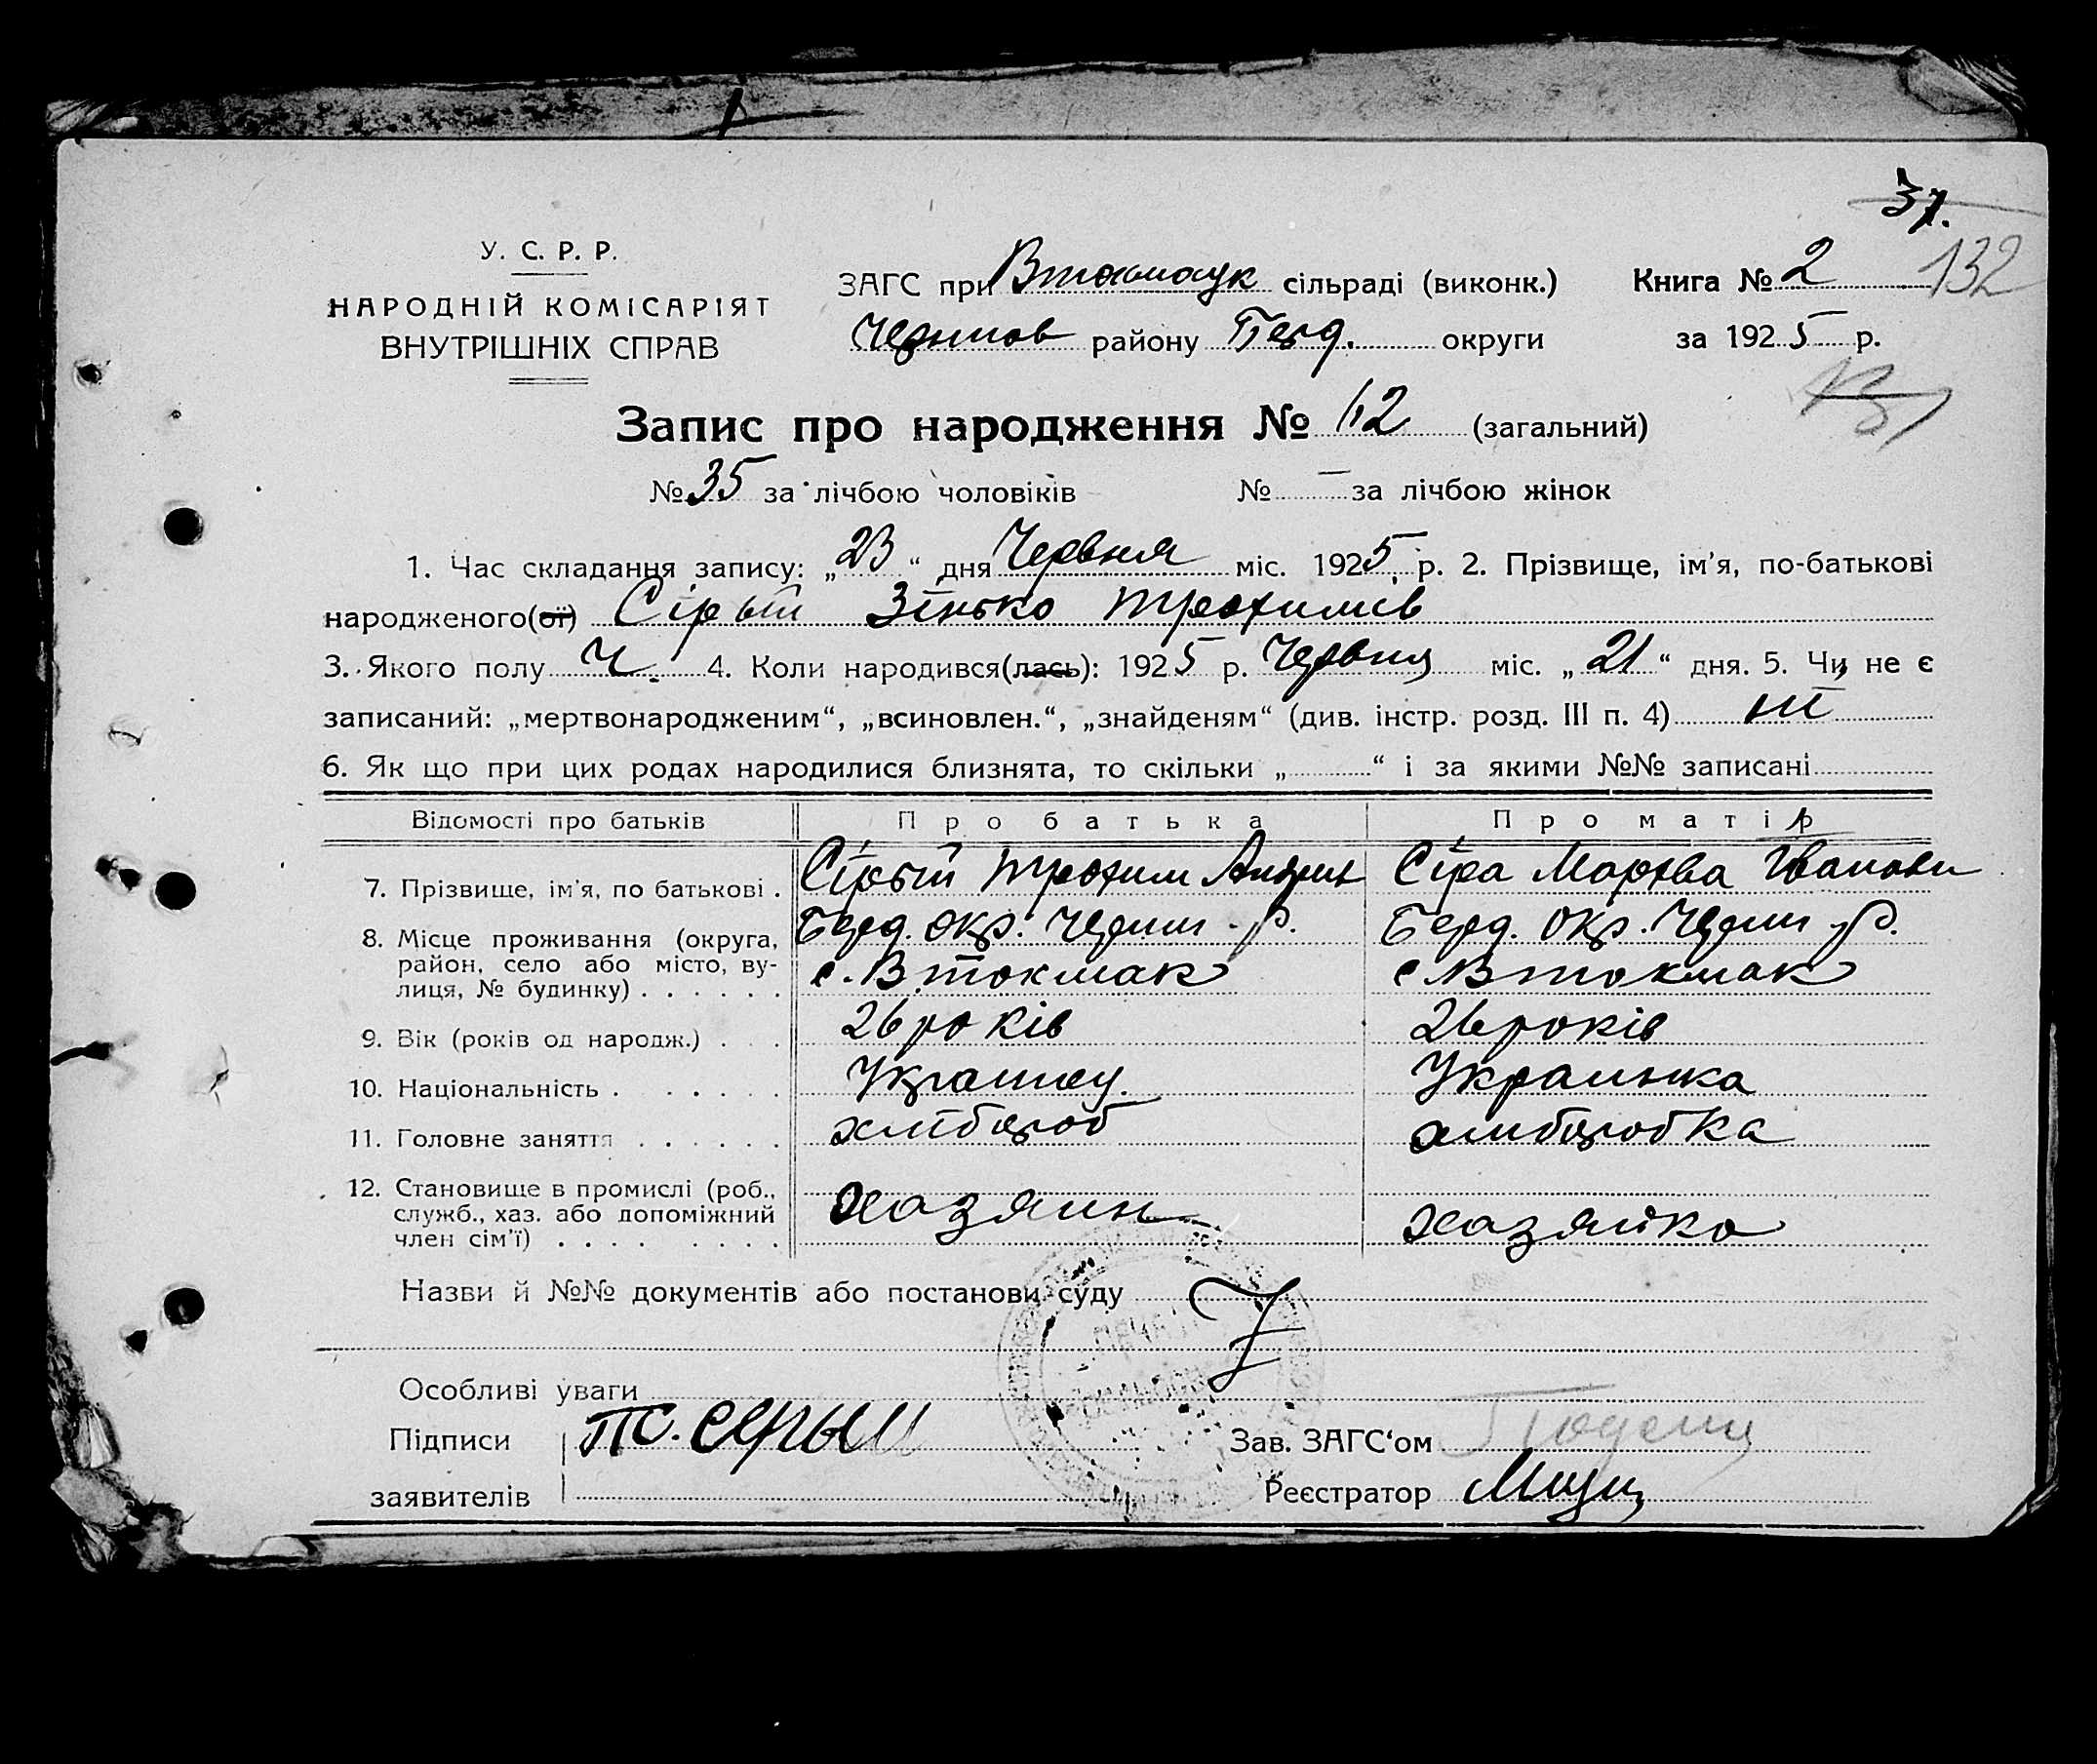 37.
132
У. С. Р. Р.
НАРОДНІЙ КОМІСАРІЯТ
ВНУТРІШНІХ СПРАВ
ЗАГС при Втокмацк сільраді (виконк.) Книга № 2
Черниг району Берд. округи за 1925 р.
Запис про народження № 42 (загальний)
№ 35 за лічбою чоловіків № — за лічбою жінок
1. Час складання запису: „23“ дня Червня міс. 1925 р. 2. Прізвище, ім'я, по-батькові
народженого(ої) Сірый Зінько Трохимів
3. Якого полу Ч. 4. Коли народився(лась): 1925 р. Червня міс. „21“ дня. 5. Чи не є
записаний: „мертвонародженим“, „всиновлен.“, „знайденям“ (див. інстр. розд. III п. 4) ні
6. Як що при цих родах народилися близнята, то скільки „ “ і за якими №№ записані
Відомості про батьків Про батька Про матір
7. Прізвище, ім'я, по батькові . Сірый Трохим Андрив Сіра Марфа Іванови
8. Місце проживання (округа, Берд. окр. Черниг. р. Берд. Окр. Черниг р.
район, село або місто, ву- с. В. токмак с В токмак
лиця, № будинку) . . . . . .
9. Вік (років од народж.) . . . 26 років 26 років
10. Національність . . . . . . Украинец. Украинка
11. Головне заняття . . . . . . хлібороб хлиборобка
12. Становище в промислі (роб., хазяин хазяйка
служб., хаз. або допоміжний
член сім'ї) . . . . . . . .
Назви й №№ документів або постанови суду
Особливі уваги
Підписи Т. Серый Зав. ЗАГС'ом
заявителів Реєстратор